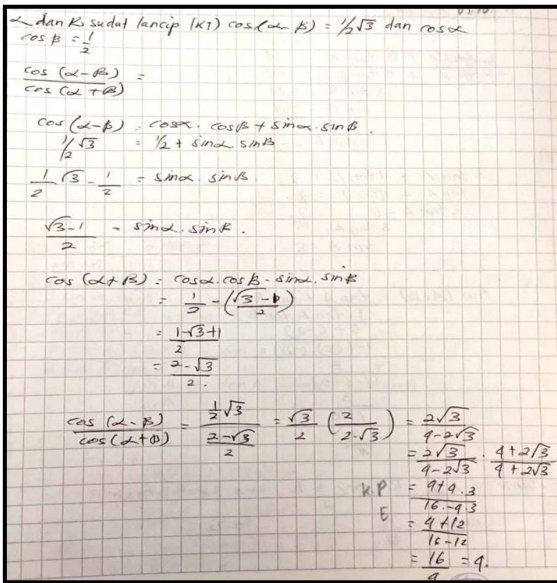 α dan β sudut lancip (K1) cos(α-β) = 1/2√3 dan cosα
cos β = 1/2
cos (α-β) / cos (α+β) =
cos (α-β) = cosα. cosβ + sinα. sinβ.
1/2 √3 = 1/2 + sinα sinβ
1/2 √3 - 1/2 = sinα. sinβ.
√3-1 / 2 = sinα. sinβ.
cos (α+β) = cosα. cosβ - sinα. sinβ
= 1/2 - (√3-1 / 2)
= 1-√3+1 / 2
= 2-√3 / 2.
cos (α-β) / cos (α+β) = 1/2 √3 / (2-√3 / 2) = √3/2 (2 / 2.√3) = 2√3 / 4-2√3
= 2√3 / 4-2√3 . 4+2√3 / 4+2√3
K.P = 4+4.3 / 16.-4.3
E = 4+12 / 16-12
= 16 / 4 = 4.